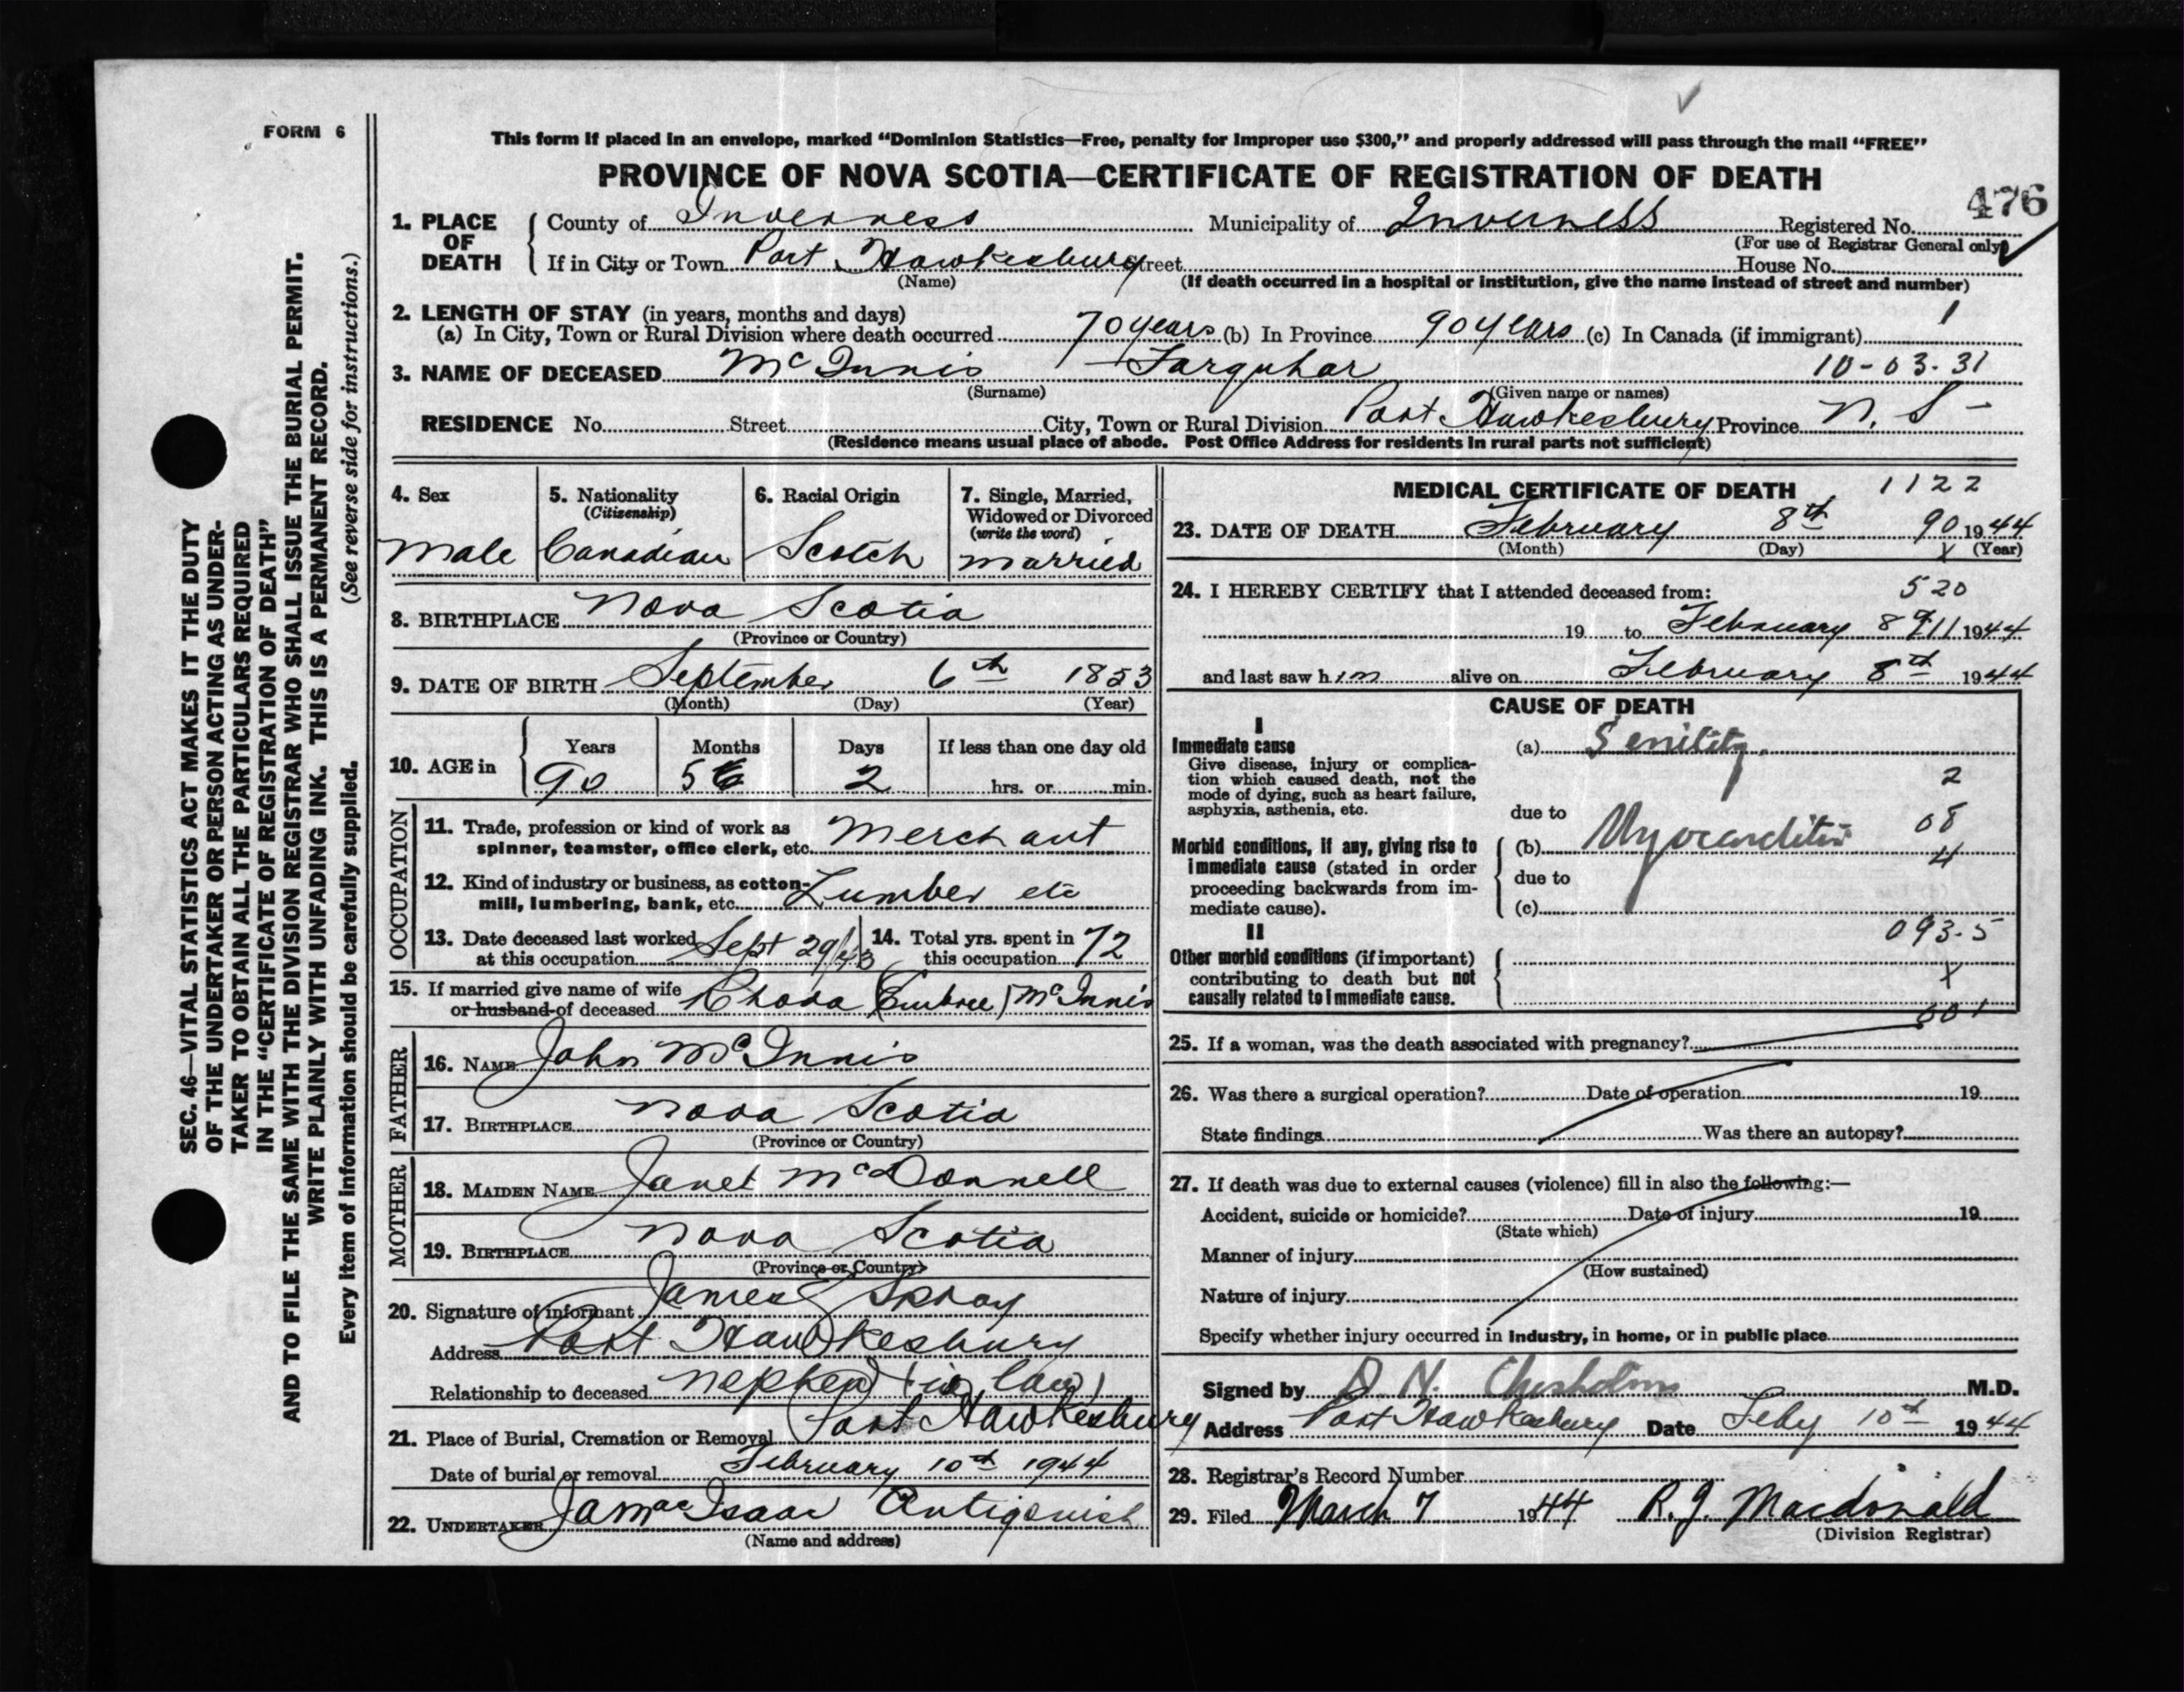 FORM 6
This form if placed in an envelope, marked “Dominion Statistics—Free, penalty for improper use $300,” and properly addressed will pass through the mail “FREE”
PROVINCE OF NOVA SCOTIA—CERTIFICATE OF REGISTRATION OF DEATH
476
1. PLACE OF DEATH County of Inverness Municipality of Inverness Registered No.
(For use of Registrar General only)
If in City or Town Port Hawkesbury Street House No.
(Name) (If death occurred in a hospital or institution, give the name instead of street and number)
2. LENGTH OF STAY (in years, months and days) 1
(a) In City, Town or Rural Division where death occurred 70 years (b) In Province 90 years (c) In Canada (if immigrant)
3. NAME OF DECEASED McInnis Farquhar 10-03-31
(Surname) (Given name or names)
RESIDENCE No. Street City, Town or Rural Division Port Hawkesbury Province N. S -
(Residence means usual place of abode. Post Office Address for residents in rural parts not sufficient)
4. Sex
male
5. Nationality
(Citizenship)
Canadian
6. Racial Origin
Scotch
7. Single, Married,
Widowed or Divorced
(write the word)
married
8. BIRTHPLACE Nova Scotia
(Province or Country)
9. DATE OF BIRTH September 6th 1853
(Month) (Day) (Year)
10. AGE in Years Months Days If less than one day old
90 5 6 2 hrs. or min.
OCCUPATION
11. Trade, profession or kind of work as
spinner, teamster, office clerk, etc. Merchant
12. Kind of industry or business, as cotton-
mill, lumbering, bank, etc. Lumber etc
13. Date deceased last worked
at this occupation Sept 29/43
14. Total yrs. spent in
this occupation 72
15. If married give name of wife
or husband of deceased Rhoda (Embree) McInnis
FATHER
16. NAME John McInnis
17. BIRTHPLACE Nova Scotia
(Province or Country)
MOTHER
18. MAIDEN NAME Janet McDonnell
19. BIRTHPLACE Nova Scotia
(Province or Country)
20. Signature of informant James Spray
Address Port Hawkesbury
Relationship to deceased nephew (in law)
21. Place of Burial, Cremation or Removal Port Hawkesbury
Date of burial or removal February 10th 1944
22. UNDERTAKER MacIsaac Antigonish
(Name and address)
MEDICAL CERTIFICATE OF DEATH 1122
23. DATE OF DEATH February 8th 90 1944
(Month) (Day) X (Year)
24. I HEREBY CERTIFY that I attended deceased from: 520
19 to February 8th 1944
and last saw him alive on February 8th 1944
CAUSE OF DEATH
I
Immediate cause
Give disease, injury or complica-
tion which caused death, not the
mode of dying, such as heart failure,
asphyxia, asthenia, etc.
(a) Senility.
2
due to
08
Morbid conditions, if any, giving rise to
immediate cause (stated in order
proceeding backwards from im-
mediate cause).
(b) Myocarditis
4
due to
(c)
093.5
II
Other morbid conditions (if important)
contributing to death but not
causally related to immediate cause.
X
001
25. If a woman, was the death associated with pregnancy?
26. Was there a surgical operation? Date of operation 19
State findings Was there an autopsy?
27. If death was due to external causes (violence) fill in also the following:—
Accident, suicide or homicide? Date of injury 19
(State which)
Manner of injury
(How sustained)
Nature of injury
Specify whether injury occurred in industry, in home, or in public place
Signed by D N. Chisholm M.D.
Address Port Hawkesbury Date Feby 10th 1944
28. Registrar's Record Number
29. Filed March 7 1944 R. J. Macdonald
(Division Registrar)
SEC. 46—VITAL STATISTICS ACT MAKES IT THE DUTY
OF THE UNDERTAKER OR PERSON ACTING AS UNDER-
TAKER TO OBTAIN ALL THE PARTICULARS REQUIRED
IN THE “CERTIFICATE OF REGISTRATION OF DEATH”
AND TO FILE THE SAME WITH THE DIVISION REGISTRAR WHO SHALL ISSUE THE BURIAL PERMIT.
WRITE PLAINLY WITH UNFADING INK. THIS IS A PERMANENT RECORD.
Every item of information should be carefully supplied. (See reverse side for instructions.)